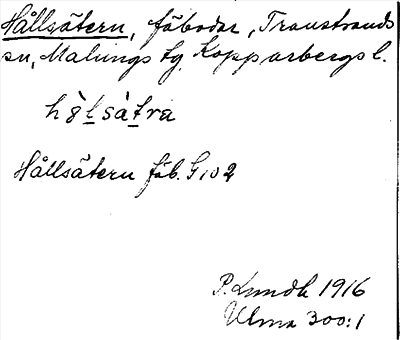 Hållsätern, fäbodar, Transtrands
sn, Malungs tg, Kopparbergs l.
hə̀ḷsàtra
Hållsätern fäb. G 102
P. Lundh 1916
Ulma 300:1